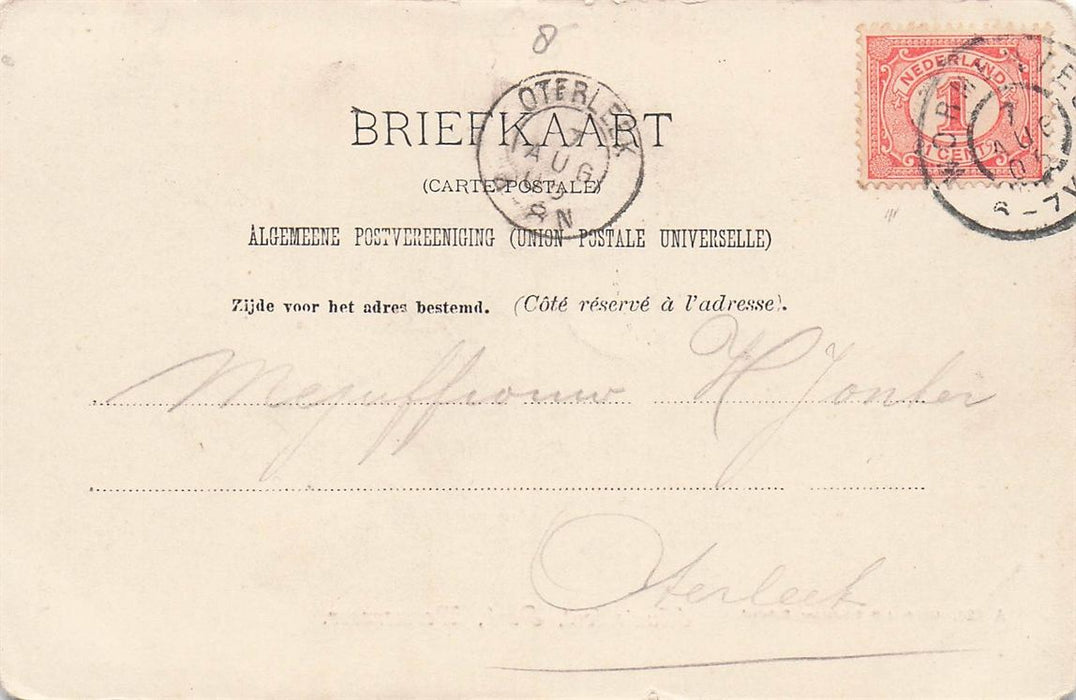 8
BRIEFKAART
(CARTE POSTALE)
ALGEMEENE POSTVEREENIGING (UNION POSTALE UNIVERSELLE)
Zijde voor het adres bestemd. (Côté réservé à l'adresse).
NEDERLAND
1
1 CENT
OTERLEEK
AUG
8-N
AUG
6-7V
Mejuffrouw H Jonker
Oterleek